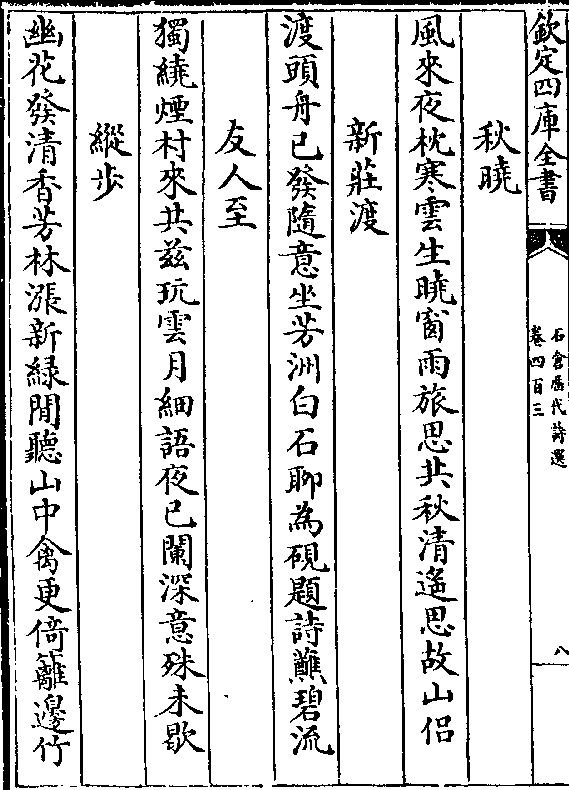 欽定四庫全書
石倉歷代詩選
卷四百三
八
秋曉
風來夜枕寒雲生曉窗雨旅思共秋清遙思故山侶
新莊渡
渡頭舟已發隨意坐芳洲白石聊為硯題詩蘸碧流
友人至
獨繞煙村來共兹玩雲月細語夜已闌深意殊未歇
縱步
幽花發清香芳林漲新緑閒聽山中禽更倚籬邊竹